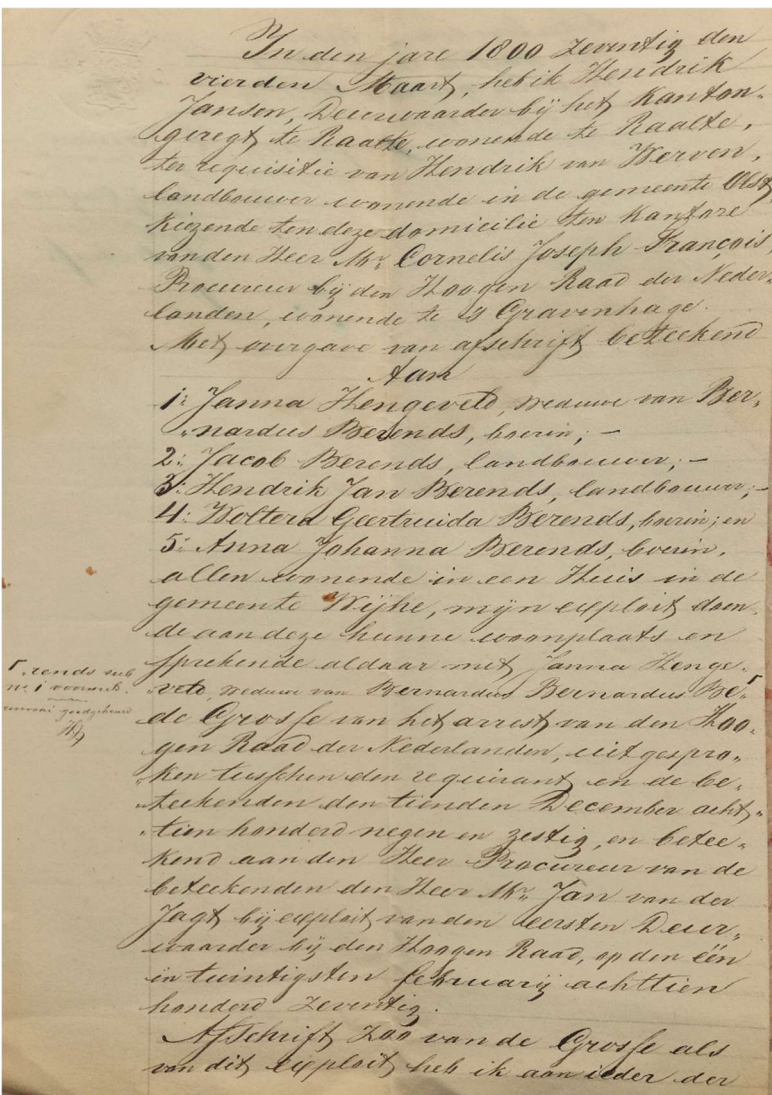 In den jare 1800 zeventig den
vierden Maart, heb ik Hendrik
Jansen, Deurwaarder bij het Kanton-
geregt te Raalte, wonende te Raalte,
ter requisitie van Hendrik van Werven,
landbouwer wonende in de gemeente Olst,
kiezende ten deze domicilie ten kantore
van den Heer Mr. Cornelis Joseph François,
Procureur bij den Hoogen Raad der Neder-
landen, wonende te 's Gravenhage.
Met overgave van afschrift beteekend
Aan
1: Janna Hengeveld, weduwe van Ber-
"nardus Berends, boerin; -
2: Jacob Berends, landbouwer; -
3: Hendrik Jan Berends, landbouwer; -
4: Woltera Geertruida Berends, boerin; en
5: Anna Johanna Berends, boerin,
allen wonende in een Huis in de
gemeente Wijhe, mijn exploit doen-
de aan deze hunne woonplaats en
sprekende aldaar met Janna Henge-
"veld, weduwe van Bernardus Bernardus Be"Γ
Γ rends sub
no 1 voorm.
goedgekeurd
HJ
de Grosse van het arrest van den Hoo-
gen Raad der Nederlanden, uitgespro-
"ken tusschen den requirant en de be-
"teekenden den tienden December acht-
"tien honderd negen en zestig, en betee-
"kend aan den Heer Procureur van de
beteekenden den Heer Mr. Jan van der
Jagt bij exploit van den eersten Deur-
waarder bij den Hoogen Raad, op den één
in twintigsten februarij achttien
honderd zeventig.
Afschrift zoo van de Grosse als
van dit exploit heb ik aan ieder der